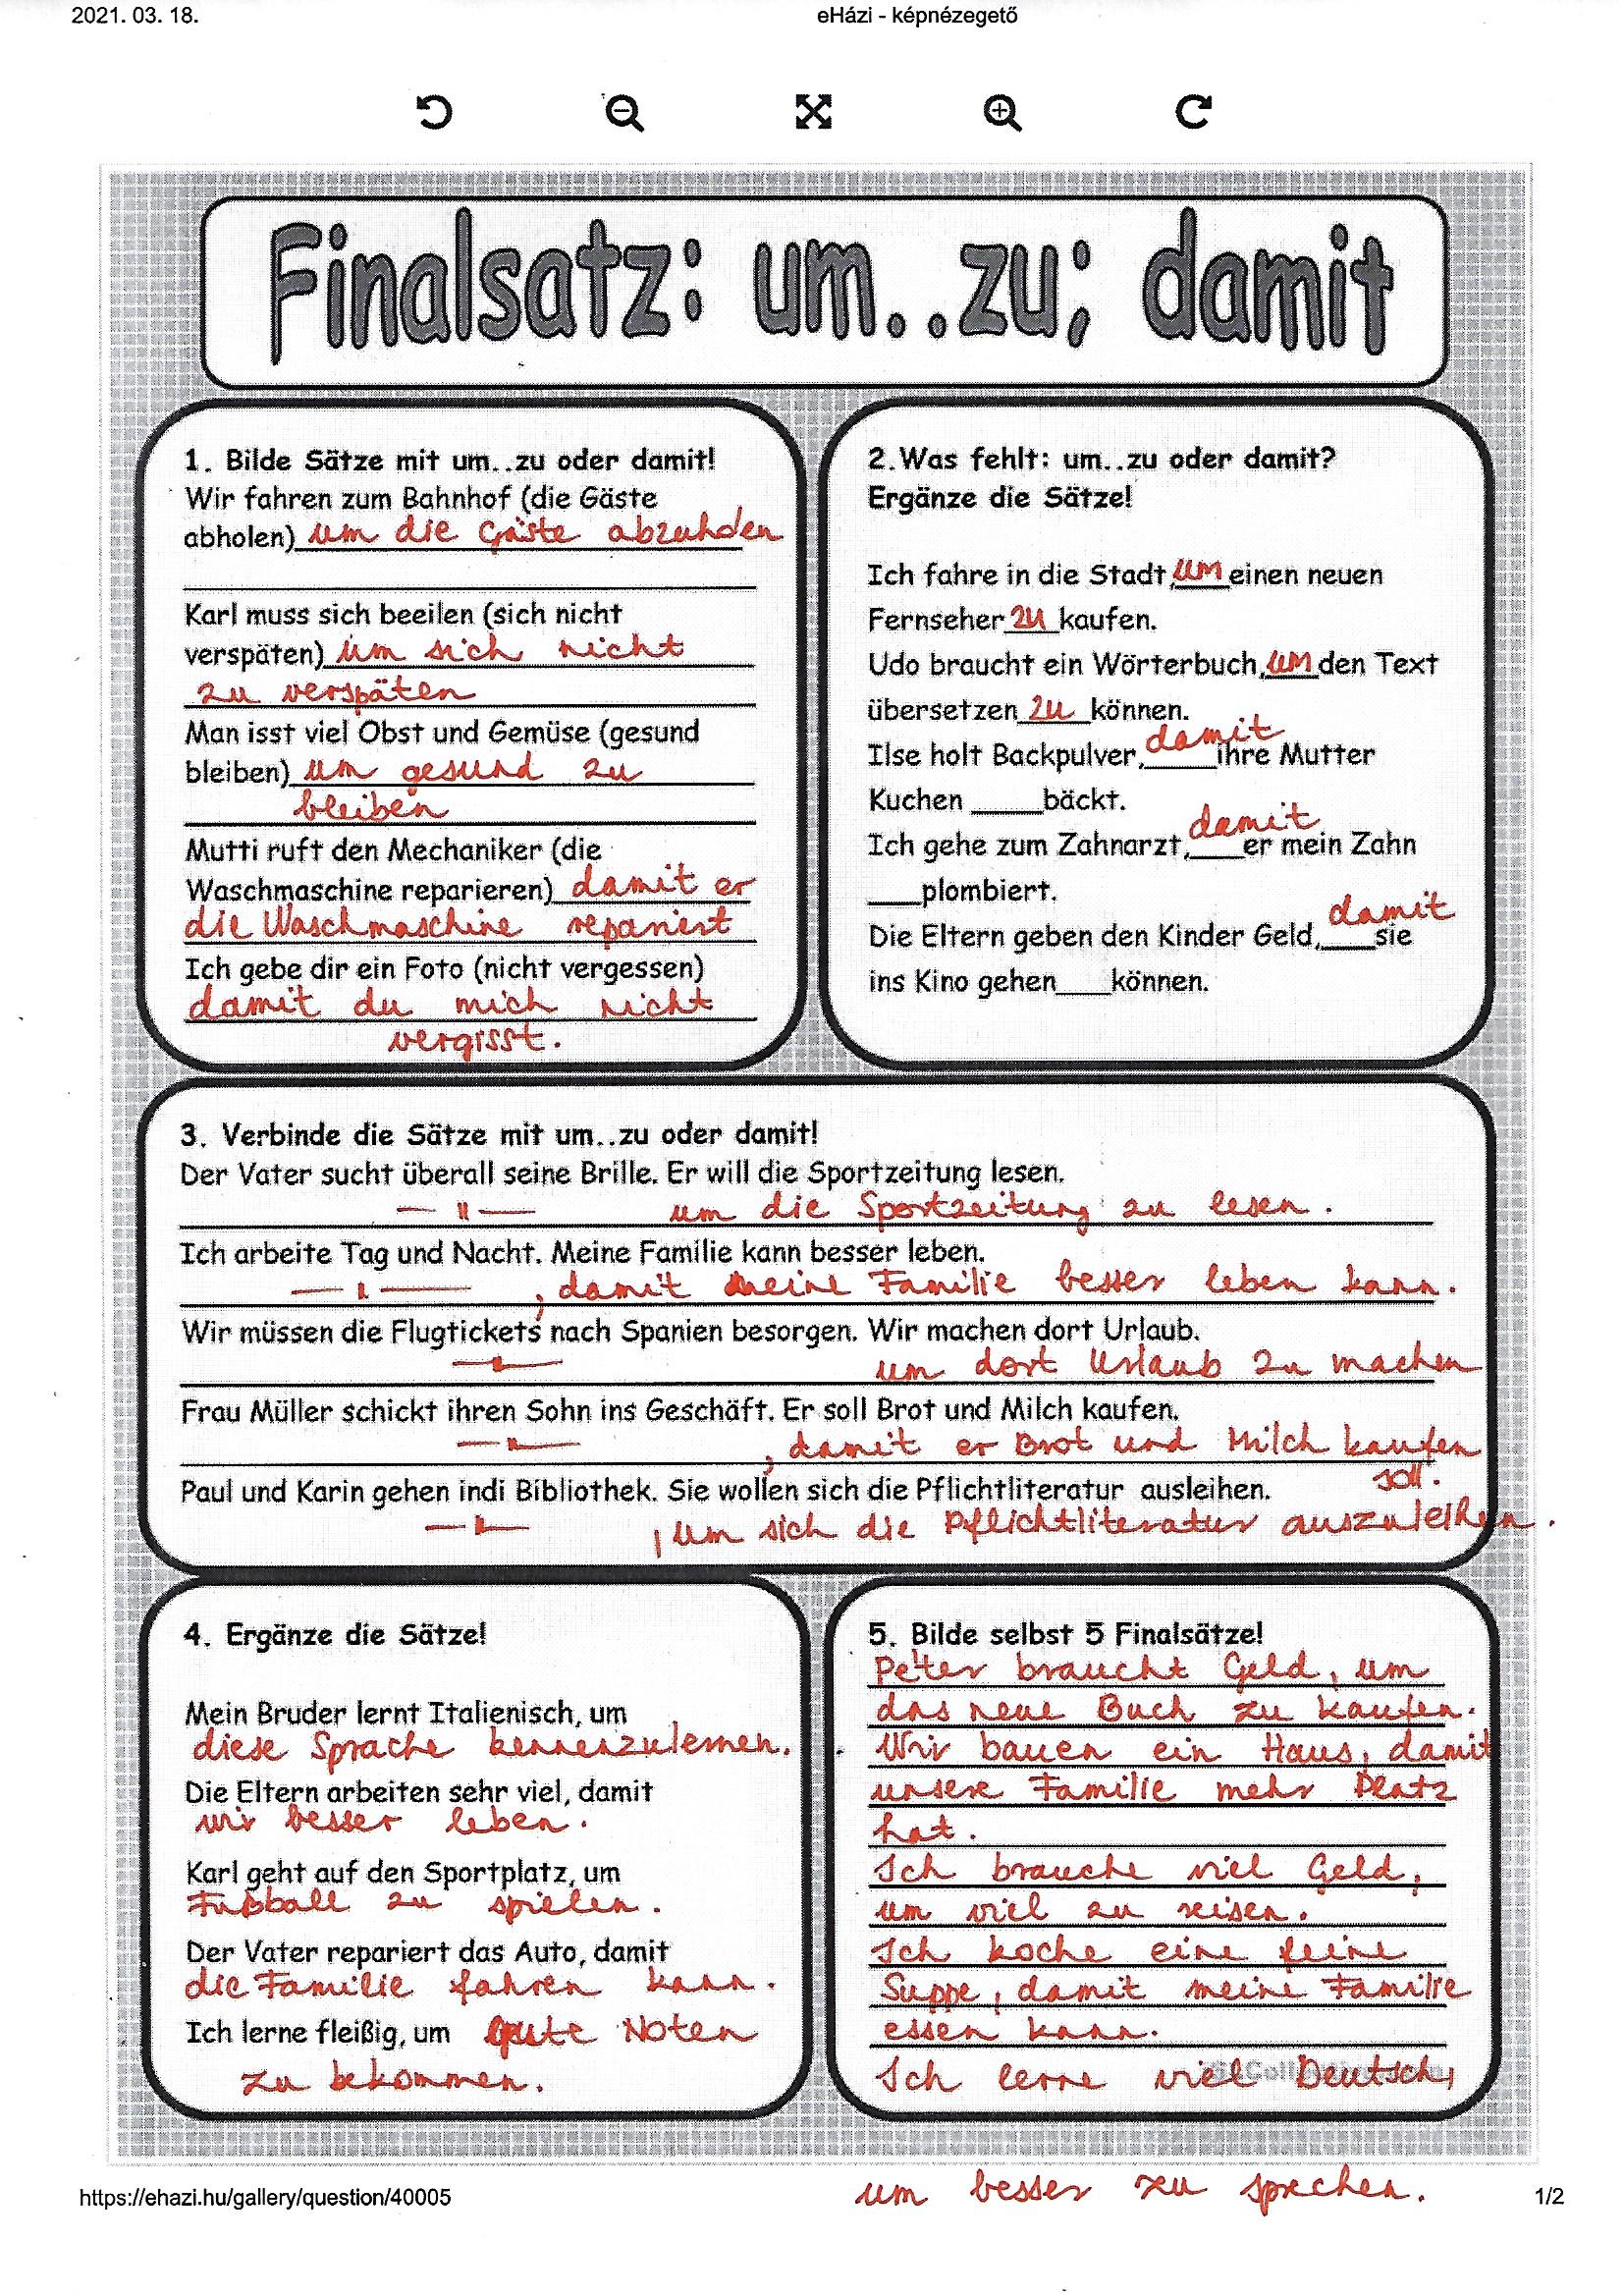 2021. 03. 18.
eHázi - képnézegető
Finalsatz: um..zu; damit
1. Bilde Sätze mit um..zu oder damit!
Wir fahren zum Bahnhof (die Gäste
abholen) um die Gäste abzuholen
Karl muss sich beeilen (sich nicht
verspäten) um sich nicht
zu verspäten
Man isst viel Obst und Gemüse (gesund
bleiben) um gesund zu
bleiben
Mutti ruft den Mechaniker (die
Waschmaschine reparieren) damit er
die Waschmaschine repariert
Ich gebe dir ein Foto (nicht vergessen)
damit du mich nicht
vergisst.
2.Was fehlt: um..zu oder damit?
Ergänze die Sätze!
Ich fahre in die Stadt, um einen neuen
Fernseher zu kaufen.
Udo braucht ein Wörterbuch, um den Text
übersetzen zu können.
Ilse holt Backpulver, damit ihre Mutter
Kuchen ____ bäckt.
Ich gehe zum Zahnarzt, damit er mein Zahn
____plombiert.
Die Eltern geben den Kinder Geld, damit sie
ins Kino gehen____können.
3. Verbinde die Sätze mit um..zu oder damit!
Der Vater sucht überall seine Brille. Er will die Sportzeitung lesen.
— " — um die Sportzeitung zu lesen.
Ich arbeite Tag und Nacht. Meine Familie kann besser leben.
— " — , damit meine Familie besser leben kann.
Wir müssen die Flugtickets nach Spanien besorgen. Wir machen dort Urlaub.
— " — um dort Urlaub zu machen
Frau Müller schickt ihren Sohn ins Geschäft. Er soll Brot und Milch kaufen.
— " — , damit er Brot und Milch kaufen
soll.
Paul und Karin gehen indi Bibliothek. Sie wollen sich die Pflichtliteratur ausleihen.
— " — , um sich die Pflichtliteratur auszuleihen.
4. Ergänze die Sätze!
Mein Bruder lernt Italienisch, um
diese Sprache kennenzulernen.
Die Eltern arbeiten sehr viel, damit
wir besser leben.
Karl geht auf den Sportplatz, um
Fußball zu spielen.
Der Vater repariert das Auto, damit
die Familie fahren kann.
Ich lerne fleißig, um gute Noten
zu bekommen.
5. Bilde selbst 5 Finalsätze!
Peter braucht Geld, um
das neue Buch zu kaufen.
Wir bauen ein Haus, damit
unsere Familie mehr Platz
hat.
Ich brauche viel Geld,
um viel zu reisen.
Ich koche eine feine
Suppe, damit meine Familie
essen kann.
Ich lerne viel Deutsch,
um besser zu sprechen.
https://ehazi.hu/gallery/question/40005
1/2